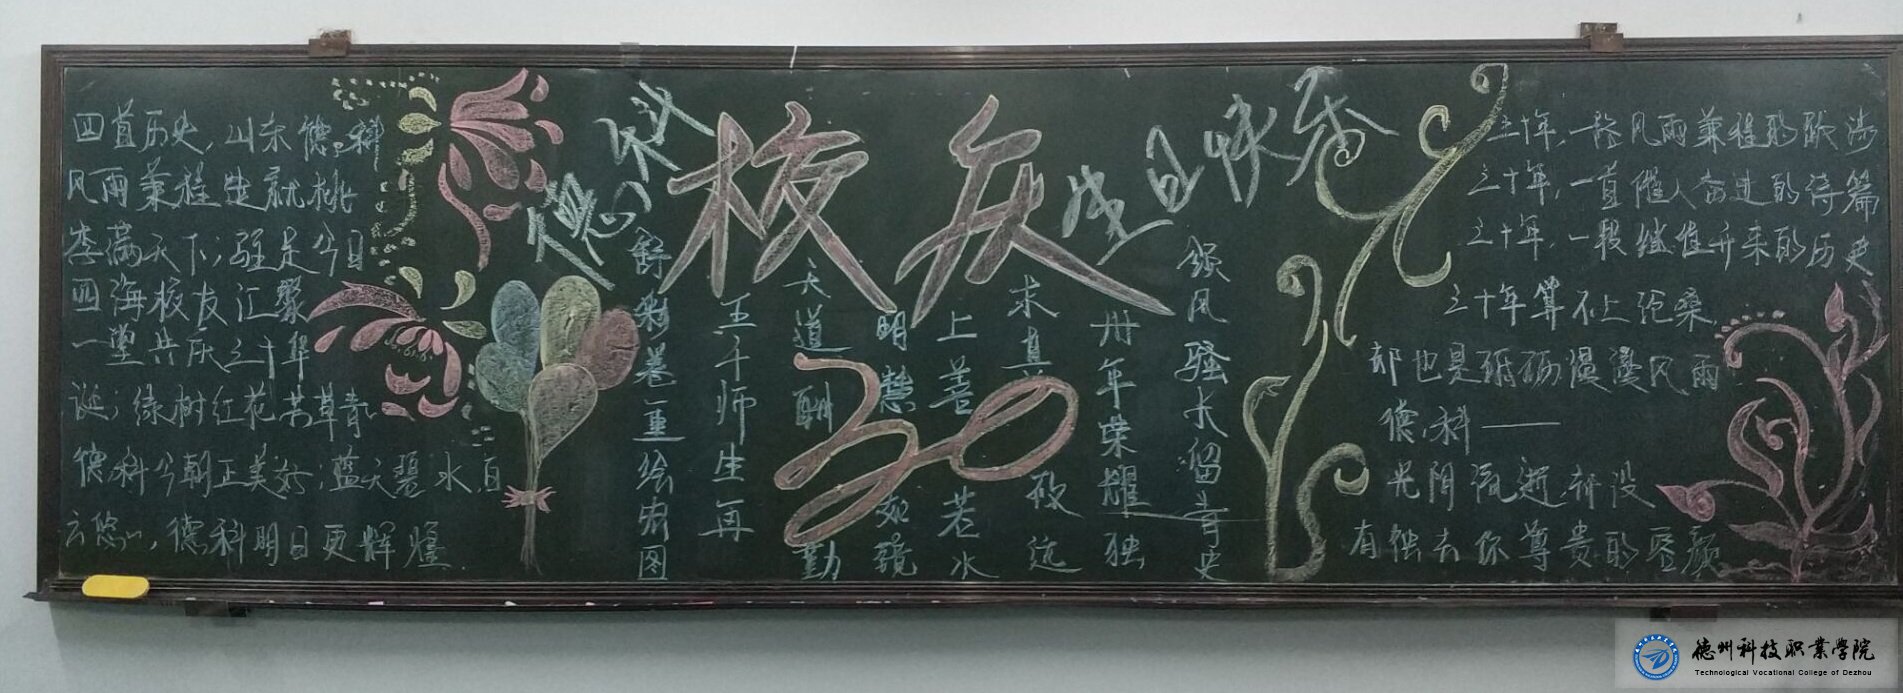 四首历史,山东德科
风雨兼程造就桃
李满天下;驻足今日
四海校友汇聚
一堂共庆三十华
诞;绿树红花芳草青
德科今朝正美好;蓝天碧水,白
云悠,德科明日更辉煌.
德州科
校庆
生日快乐
30
舒彩卷重绘宏图
五千师生再
天道酬勤
明慧如镜
上善若水
求真致远
卅年荣耀独
领风骚长留青史
三十年,一程风雨兼程的跋涉
三十年,一首催人奋进的诗篇
三十年,一段继往开来的历史
三十年算不上沧桑,
却也是砥砺漫漫风雨
德科——
光阴流逝,并没
有抹去你尊贵的容颜
德州科技职业学院
Technological Vocational College of Dezhou